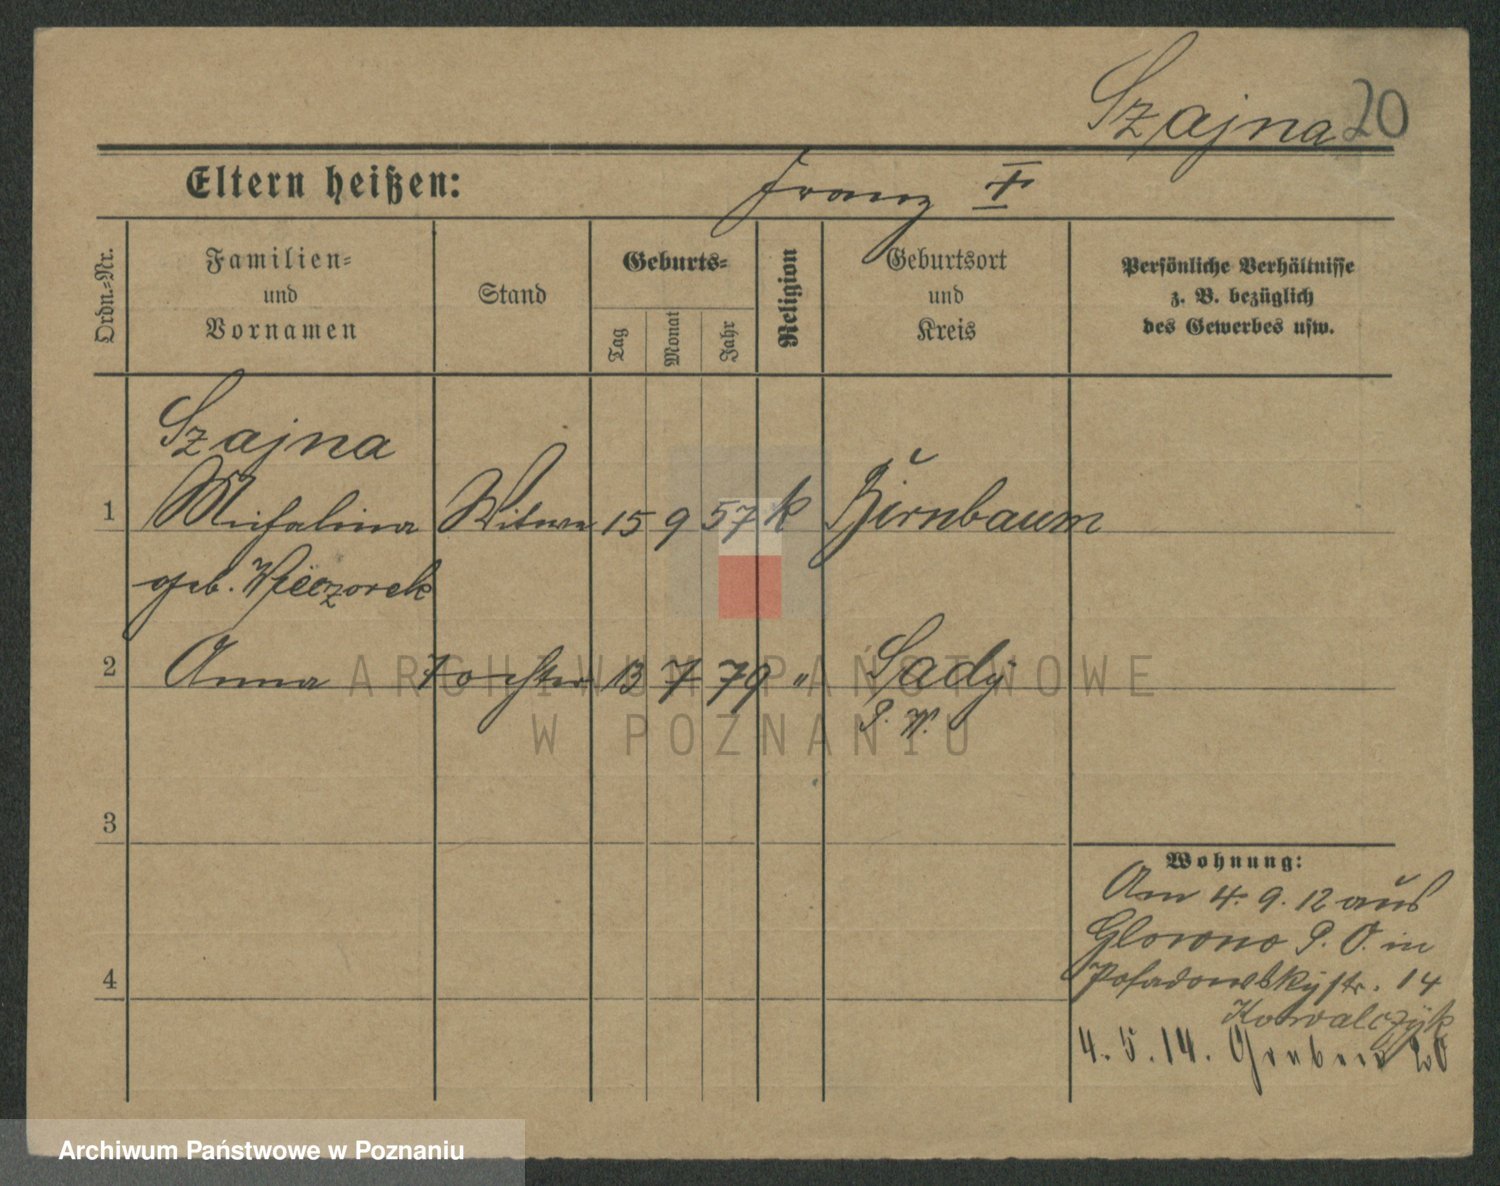 Szajna 20
Eltern heißen: Franz †
Ordn.-Nr.
Familien-
und
Vornamen
Stand
Geburts-
Tag
Monat
Jahr
Religion
Geburtsort
und
Kreis
Persönliche Verhältnisse
z. B. bezüglich
des Gewerbes usw.
Szajna
1 Michalina Witwe 15 9 57 k Birnbaum
geb. Wieczorek
2 Anna Tochter 13 7 79 " Sady
P. W.
3
4
Wohnung:
Am 4. 9. 12 aus
Glowno P. O. in
Posadowskystr. 14
Kowalczyk
4. 5. 14. 20
ARCHIWUM PAŃSTWOWE
W POZNANIU
Archiwum Państwowe w Poznaniu